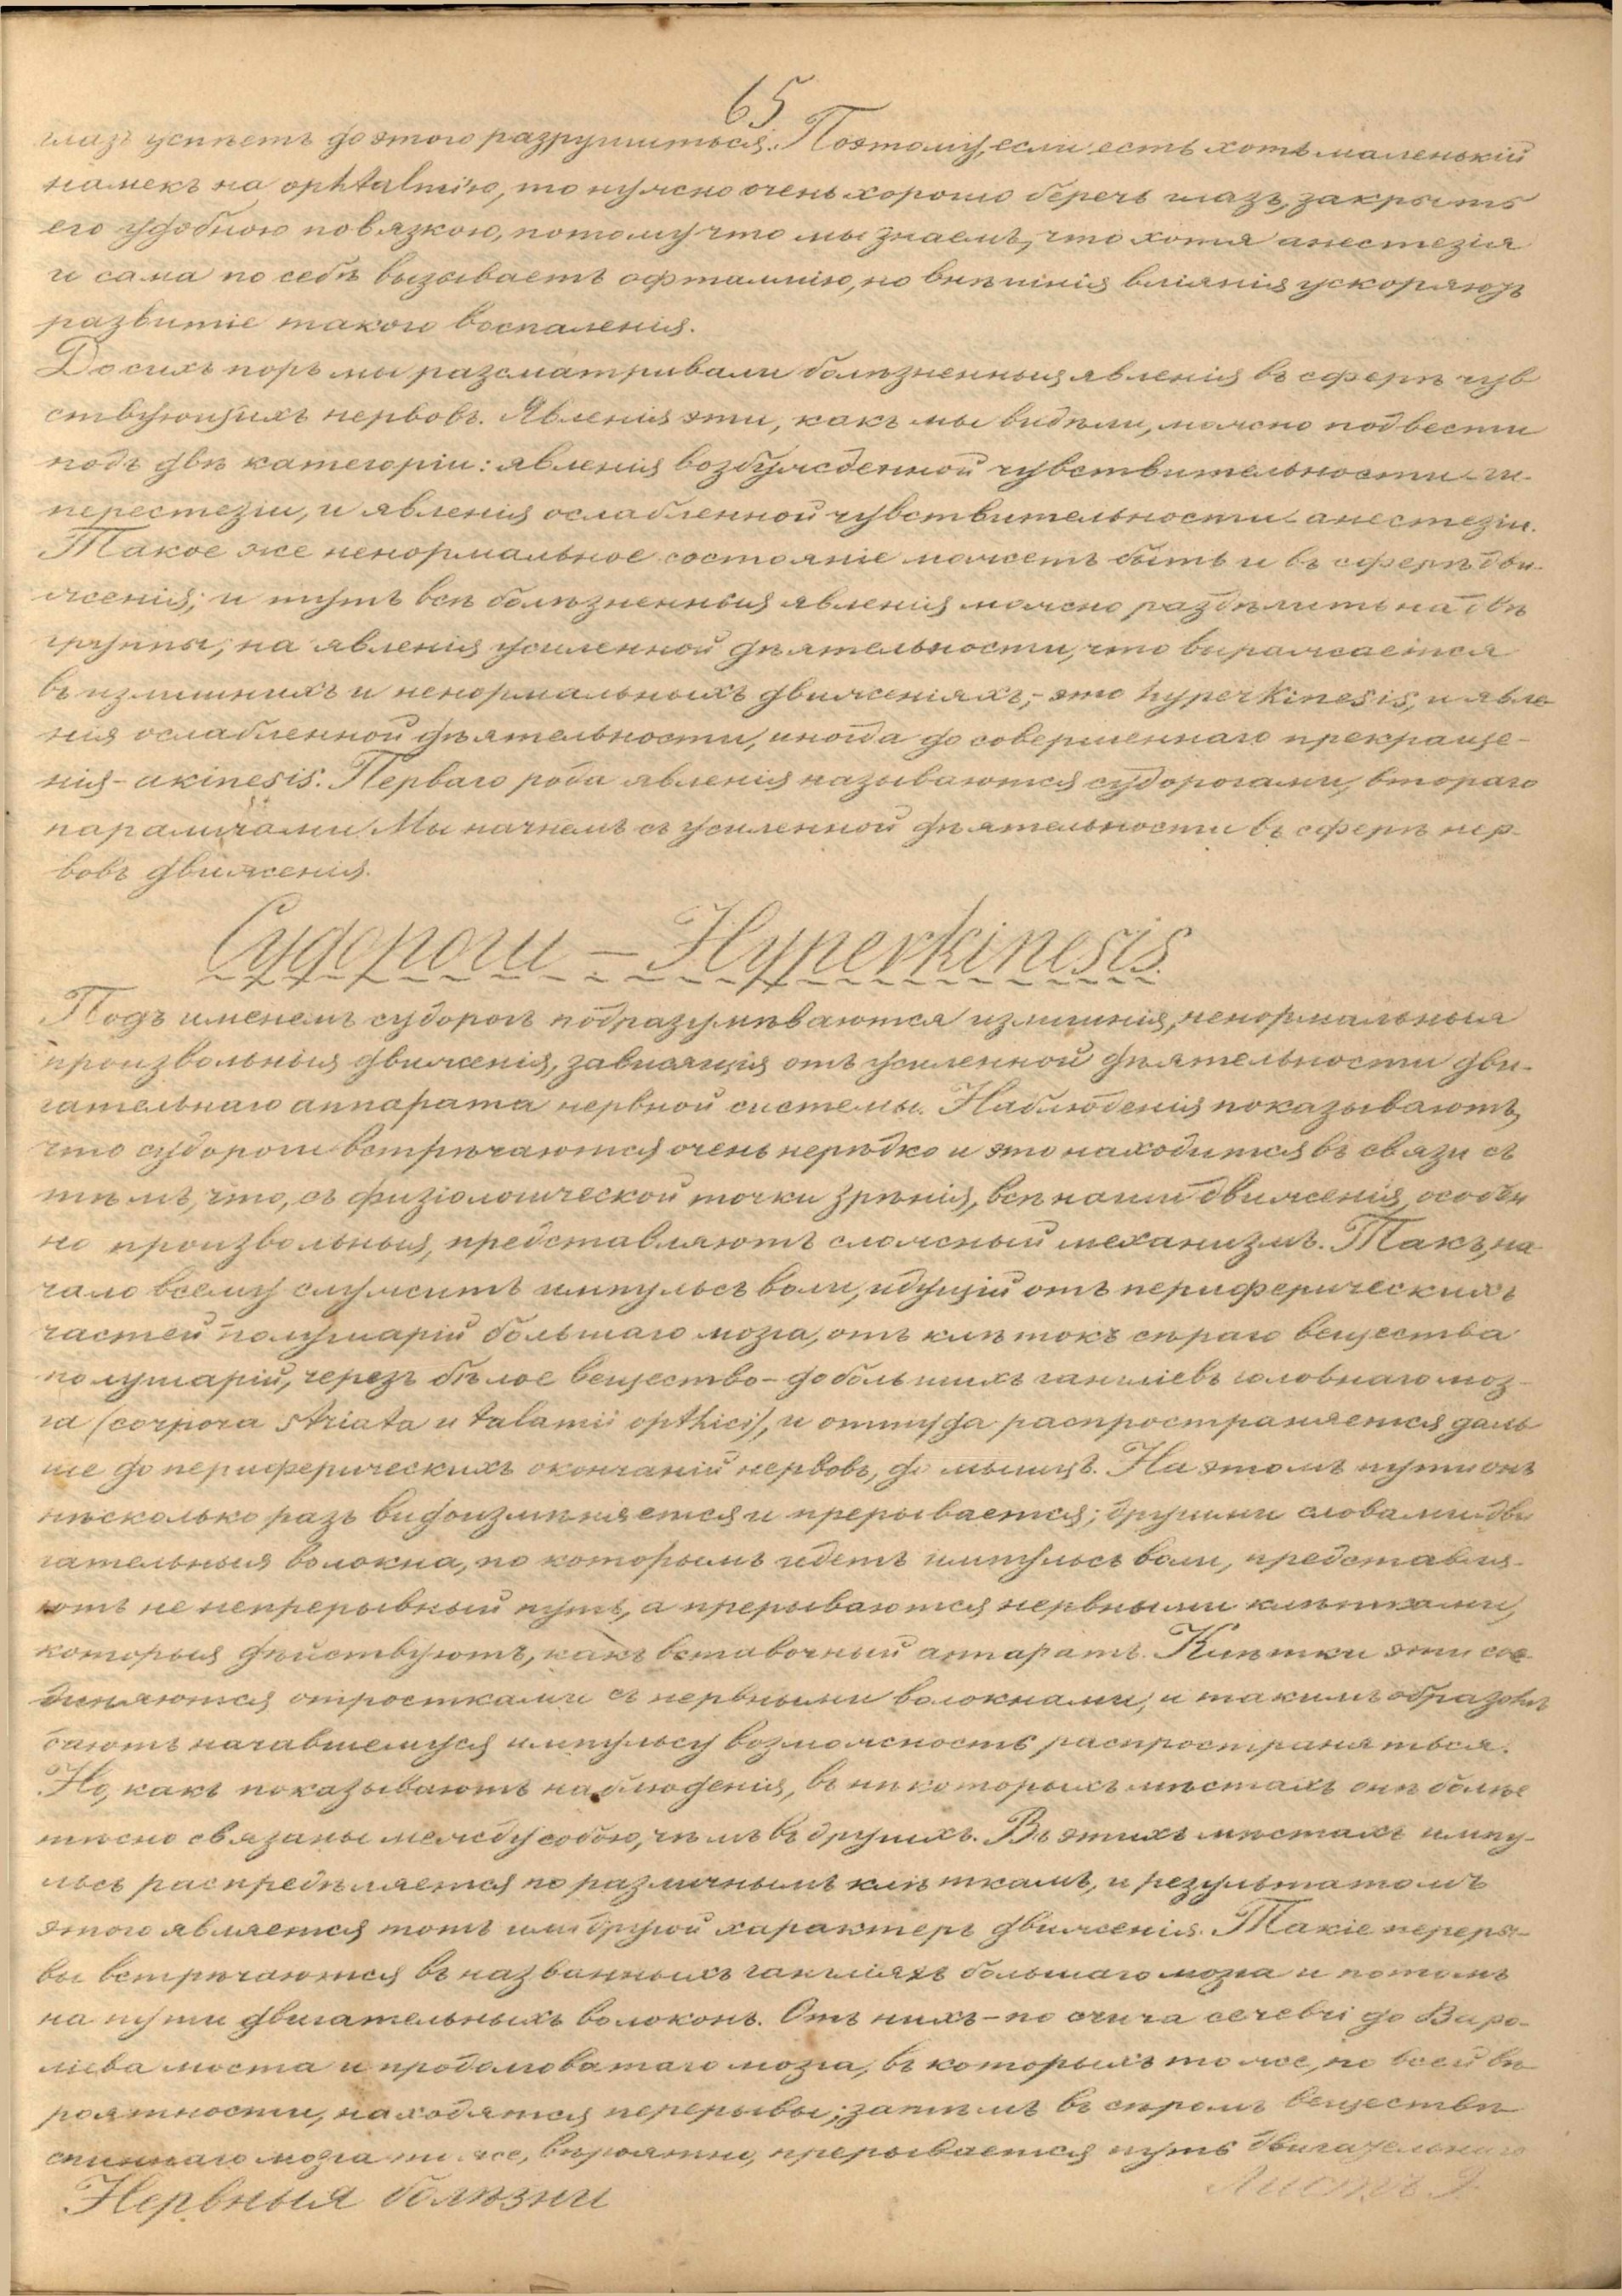 65
глазъ успѣетъ до этого разрушиться. Поэтому, если есть хоть маленькій
намекъ на ophtalmiю, то нужно очень хорошо беречь глазъ, закрыть
его удобною повязкою, потому что мы знаемъ, что хотя анестезія
и сама по себѣ вызываетъ офталмію, но внѣшнія вліянія ускоряютъ
развитіе такого воспаленія.
До сихъ поръ мы разсматривали болѣзненныя явленія въ сферѣ чув
ствующихъ нервовъ. Явленія эти, какъ мы видѣли, можно подвести
подъ двѣ категоріи: явленія возбужденной чувствительности - ги-
перестезіи, и явленія ослабленной чувствительности - анестезіи.
Такое же ненормальное состояніе можетъ быть и въ сферѣ дви-
женія; и тутъ всѣ болѣзненныя явленія можно раздѣлить на двѣ
группы; на явленія усиленной дѣятельности, что выражается
въ излишнихъ и ненормальныхъ движеніяхъ, - это hyperkinesis, и явле
нія ослабленной дѣятельности, иногда до совершеннаго прекраще-
нія - akinesis. Перваго рода явленія называются судорогами, втораго
параличами. Мы начнемъ съ усиленной дѣятельности въ сферѣ нер-
вовъ движенія.
Судороги - Hyperkinesis.
Подъ именемъ судорогъ подразумѣваются излишнія, ненормальныя
произвольныя движенія, зависящія отъ усиленной дѣятельности дви-
гательнаго аппарата нервной системы. Наблюденія показываютъ,
что судороги встрѣчаются очень нерѣдко и это находится въ связи съ
тѣмъ, что, съ физіологической точки зрѣнія, всѣ наши движенія, особен
но произвольныя, представляютъ сложный механизмъ. Такъ, на
чало всему служитъ импульсъ воли, идущій отъ периферическихъ
частей полушарій большаго мозга, отъ клѣтокъ сѣраго вещества
полушарій, черезъ бѣлое вещество - до большихъ ганглiевъ головнаго моз-
га (corpora striata и talamii opthici), и оттуда распространяется даль
ше до периферическихъ окончаній нервовъ, до мышцъ. На этомъ пути онъ
нѣсколько разъ видоизмѣняется и прерывается; другими словами дви
гательныя волокна, по которымъ идетъ импульсъ воли, представля-
ютъ не непрерывный путь, а прерываются нервными клѣтками,
которыя дѣйствуютъ, какъ вставочный аппаратъ. Клѣтки эти сое
диняются отростками съ нервными волокнами, и такимъ образомъ
даютъ начавшемуся импульсу возможность распространяться.
Но, какъ показываютъ наблюденія, въ нѣкоторыхъ мѣстахъ онѣ болѣе
тѣсно связаны между собою, чѣмъ въ другихъ. Въ этихъ мѣстахъ импу-
льсъ распредѣляется по различнымъ клѣткамъ, и результатомъ
этого является тотъ или другой характеръ движенія. Такіе переры-
вы встрѣчаются въ названныхъ гангліяхъ большаго мозга и потомъ
на пути двигательныхъ волоконъ. Отъ нихъ - по crura cerebri до Варо-
ліева моста и продолговатаго мозга, въ которыхъ тоже, по всей вѣ
роятности, находятся перерывы; затѣмъ въ сѣромъ веществѣ
спиннаго мозга также, вѣроятно, прерывается путь двигательнаго
Нервныя болѣзни
Листъ 9.